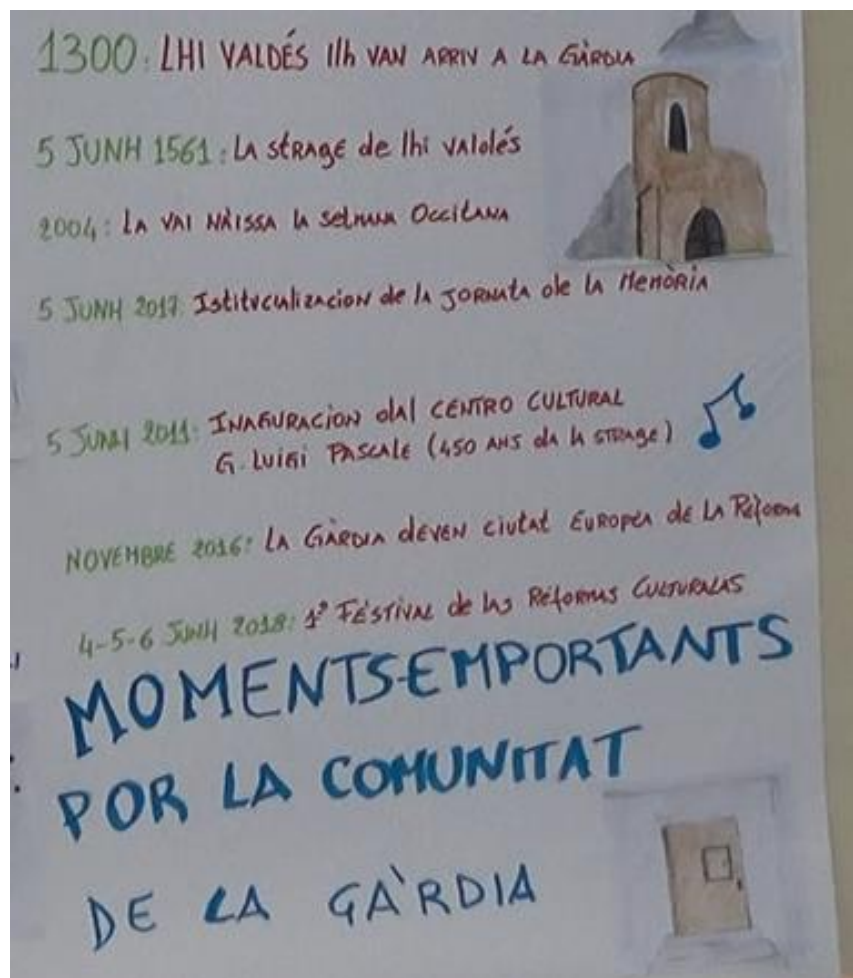 1300: LHI VALDÉS Ilh VAN ARRIV A LA GÀRDIA
5 JUNH 1561: LA STRAGE de lhi valdés
2004: LA VAI NÀISSA la setmana Occitana
5 JUNH 2017: Istituculizacion de la JORNATA de la Memòria
5 JUNH 2011: INAGURACION dal CENTRO CULTURAL
G. Luigi PASCALE (450 ANS da la STRAGE)
NOVEMBRE 2016: LA GÀRDIA deven ciutat EUROPEA de LA Reforma
4-5-6 JUNH 2018: 1° FÈSTIVAL de las Reformas CULTURALAS
MOMENTS EMPORTANTS
POR LA COMUNITAT
DE LA GÀRDIA